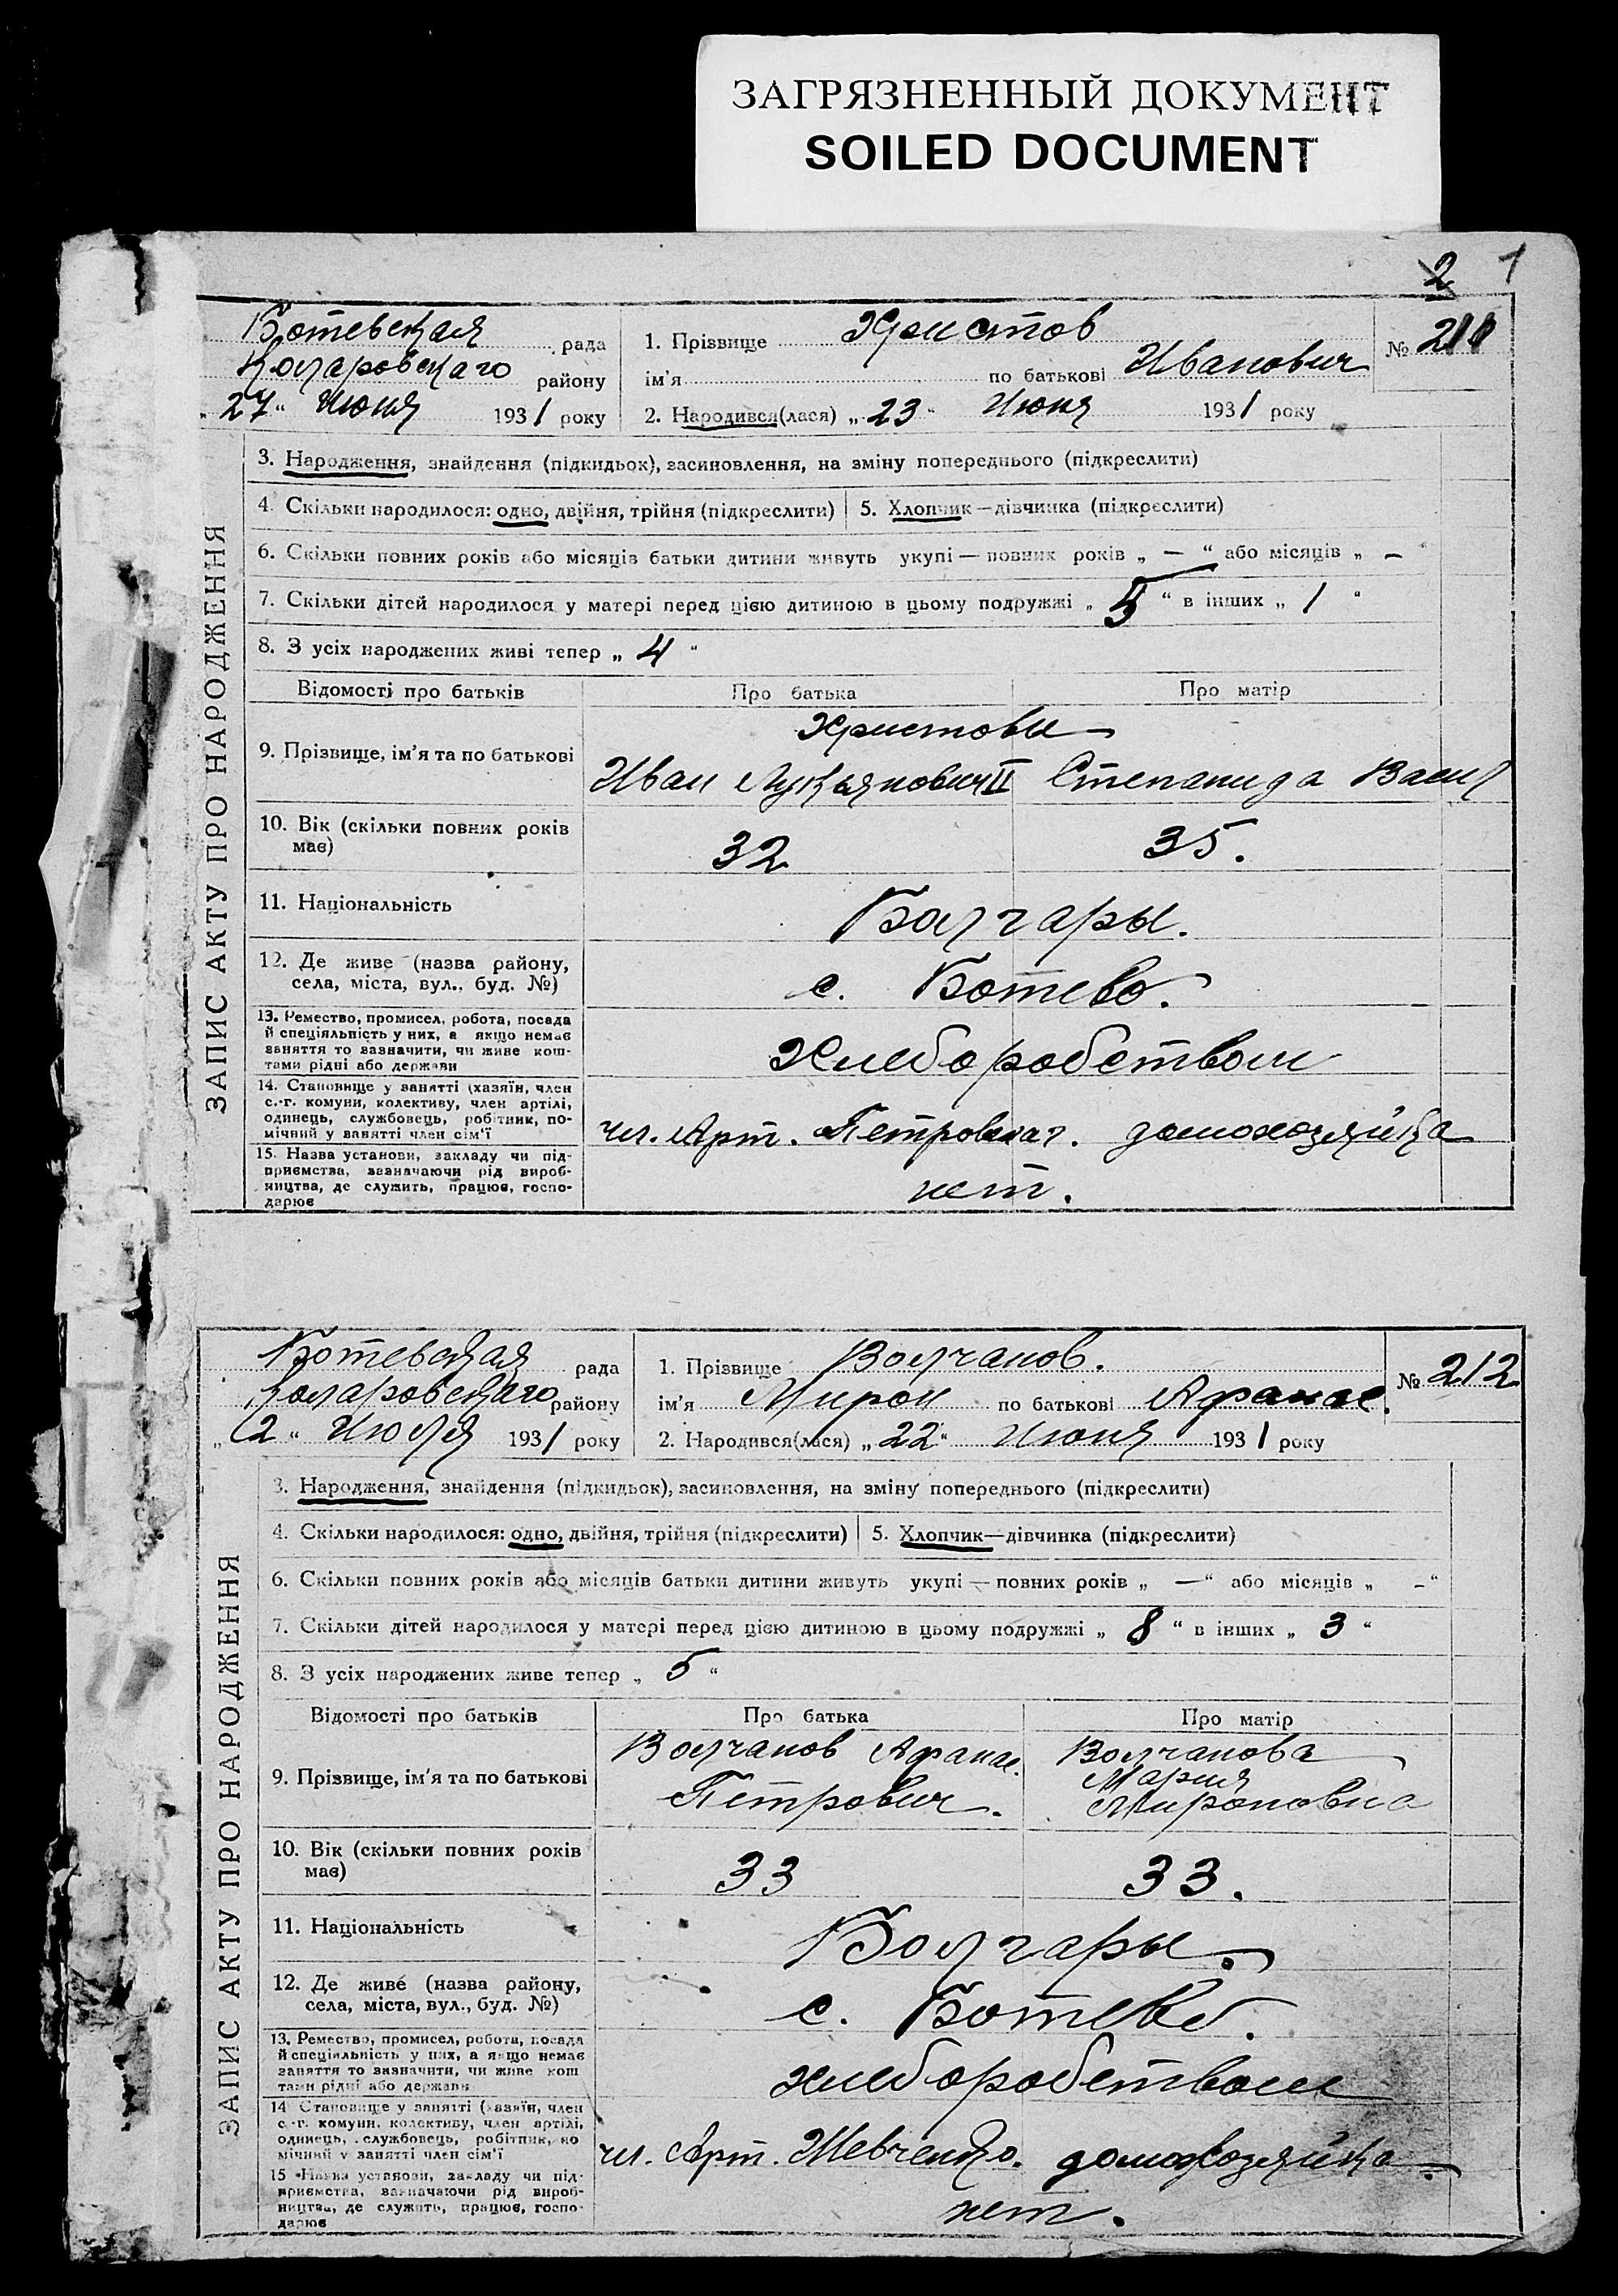 ЗАГРЯЗНЕННЫЙ ДОКУМЕНТ
SOILED DOCUMENT
2 1
Ботевская рада
Коларовскаго району
„27“ Июня 1931 року
1. Прізвище Христов
ім'я по батькові Иванович
№ 211
2. Народився(лася) „23“ Июня 1931 року
ЗАПИС АКТУ ПРО НАРОДЖЕННЯ
3. Народження, знайдення (підкидьок), засиновлення, на зміну попереднього (підкреслити)
4. Скільки народилося: одно, двійня, трійня (підкреслити) 5. Хлопчик—дівчинка (підкреслити)
6. Скільки повних років або місяців батьки дитини живуть укупі — повних років „ — “ або місяців „ —
7. Скільки дітей народилося у матері перед цією дитиною в цьому подружжі „ 5 “ в інших „ 1 “
8. З усіх народжених живі тепер „ 4 “
Відомості про батьків Про батька Про матір
9. Прізвище, ім'я та по батькові
Христовы
Иван Лукьянович II Степанида Васил
10. Вік (скільки повних років
має)
32 35.
11. Національність
Болгары.
12. Де живе (назва району,
села, міста, вул., буд. №)
с. Ботево.
13. Ремество, промисел, робота, посада
й спеціяльність у них, а якщо немає
заняття то зазначити, чи живе кош-
тами рідні або держави
Хлеборобством
14. Становище у занятті (хазяїн, член
с.-г. комуни, колективу, член артілі,
одинець, службовець, робітник, по-
мічний у занятті член сім'ї
чл. Арт. Петровског. домохозяйка
15. Назва установи, закладу чи під-
приємства, зазначаючи рід вироб-
ництва, де служить, працює, госпо-
дарює
нет.
Ботевская рада
Коларовскаго району
„2“ Июля 1931 року
1. Прізвище Волчанов.
ім'я Мирон по батькові Афанас.
№ 212
2. Народився(лася) „22“ Июня 1931 року
ЗАПИС АКТУ ПРО НАРОДЖЕННЯ
3. Народження, знайдення (підкидьок), засиновлення, на зміну попереднього (підкреслити)
4. Скільки народилося: одно, двійня, трійня (підкреслити) 5. Хлопчик—дівчинка (підкреслити)
6. Скільки повних років або місяців батьки дитини живуть укупі — повних років „ —“ або місяців „ –“
7. Скільки дітей народилося у матері перед цією дитиною в цьому подружжі „ 8 “ в інших „ 3 “
8. З усіх народжених живе тепер „ 5 “
Відомості про батьків Про батька Про матір
9. Прізвище, ім'я та по батькові
Волчанов Афанас. Волчанова
Петрович. Мария
Мироновна
10. Вік (скільки повних років
має)
33 33.
11. Національність
Болгары.
12. Де живе (назва району,
села, міста, вул., буд. №)
с. Ботево.
13. Ремество, промисел, робота, посада
й спеціяльність у них, а якщо немає
заняття то зазначити, чи живе кош
тами рідні або держави
хлеборобством
14 Становище у занятті (хазяїн, член
с.-г. комуни, колективу, член артілі,
одинець, службовець, робітник, по
мічний у занятті член сім'ї
чл. Арт. Шевченко. домохозяйка.
15 Назва установи, закладу чи під-
приємства, зазначаючи рід вироб-
ництва, де служить, працює, госпо-
дарює
нет.